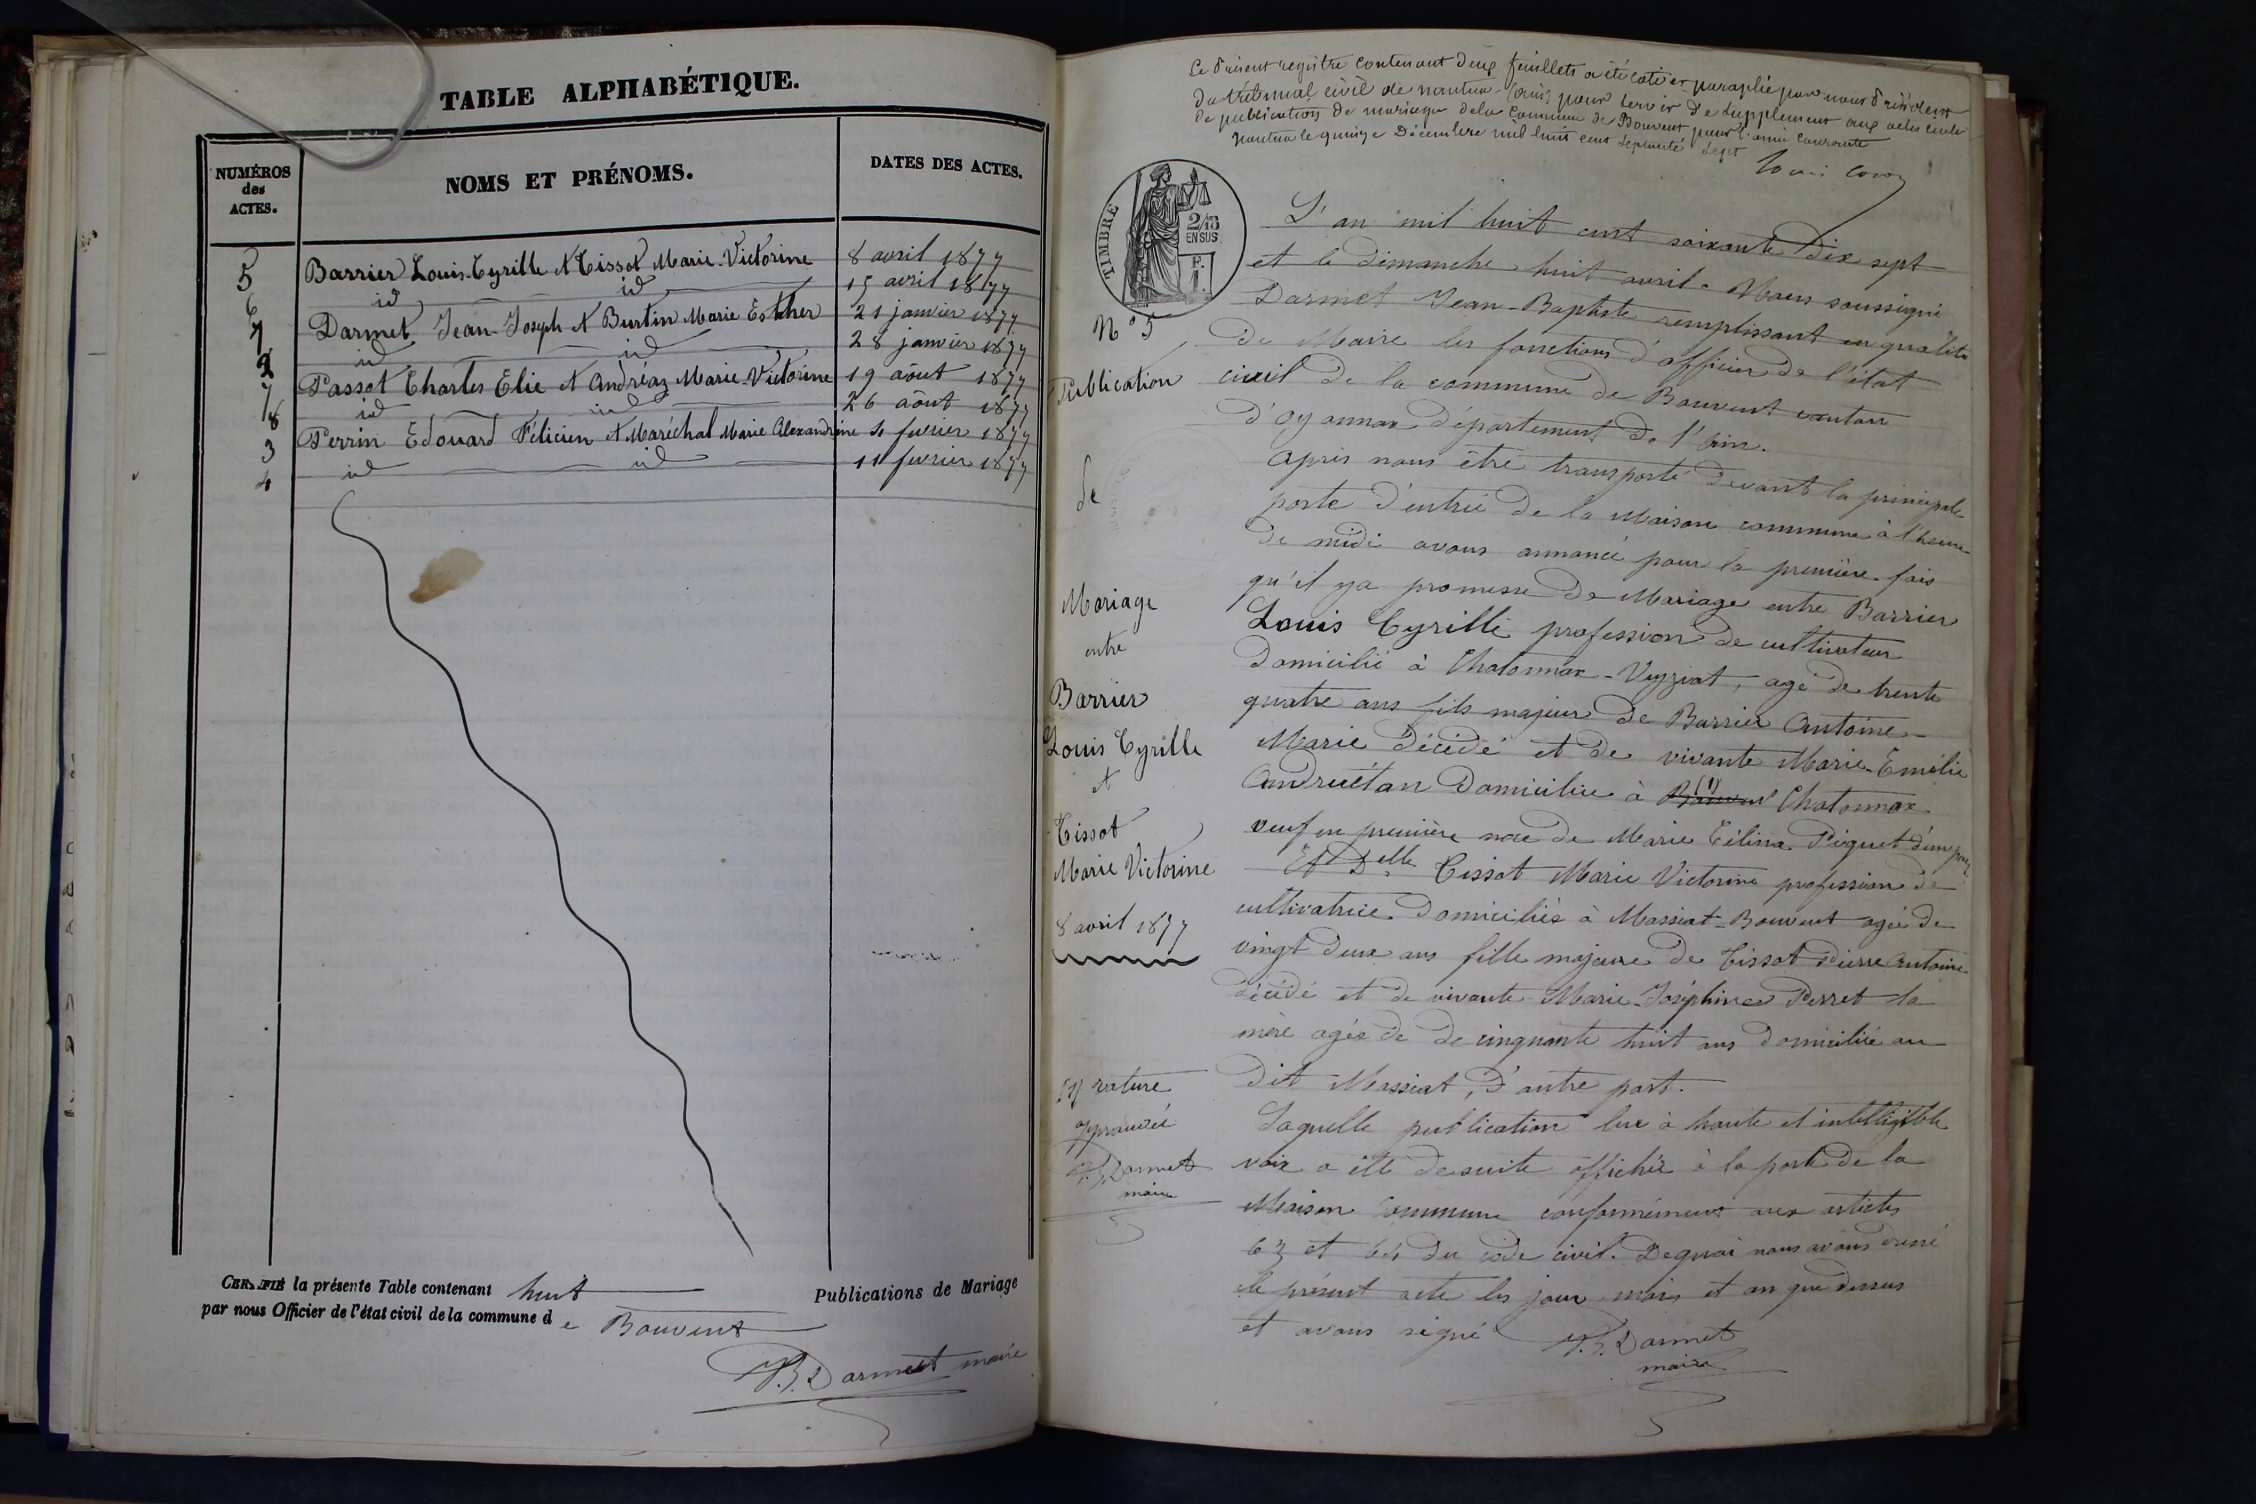 TABLE ALPHABÉTIQUE.
NUMÉROS
des
ACTES.
NOMS ET PRÉNOMS.
DATES DES ACTES.
5 Barrier Louis-Cyrille et Tissot Marie-Victorine 8 avril 1877
6 id id 15 avril 1877
1 Darmet Jean-Joseph et Burtin Marie Esther 21 janvier 1877
2 id id 28 janvier 1877
7 Passot Charles Elie et Andréaz Marie-Victorine 19 août 1877
8 id id 26 août 1877
3 Perrin Edouard Félicien et Maréchal Marie Alexandrine 4 fevrier 1877
4 id id 11 fevrier 1877
CERTIFIÉ la présente Table contenant huit Publications de Mariage
par nous Officier de l'état civil de la commune de Bouvent
J.B. Darmet maire
Le présent registre contenant deux feuillets a été coté et paraphé par nous Président
du tribunal civil de nantua (ain) pour servir de supplément aux actes civils
de publication de mariage de la commune de Bouvent pour l'année courante
Nantua le quinze Décembre mil huit cent septante sept
TIMBRE
2/10
EN SUS
F.
1.
N° 5
Publication
de
Mariage
entre
Barrier
Louis Cyrille
et
Tissot
Marie Victorine
8 avril 1877
(1) rature
approuvée
J.B. Darmet
maire
L'an mil huit cent soixante dix sept
et le dimanche huit avril. Nous soussigné
Darmet Jean-Baptiste remplissant en qualité
de Maire les fonctions d'officier de l'état
civil de la commune de Bouvent canton
d'oyonnax département de l'Ain.
après nous être transporté devant la principale
porte d'entrée de la Maison commune à l'heure
de midi avons annoncé pour la première fois
qu'il y a promesse de Mariage entre Barrier
Louis Cyrille profession de cultivateur
domicilié à Chatonnax-Veyziat, agé de trente
quatre ans fils majeur de Barrier Antoine-
Marie décédé et de vivante Marie-Emélie
Andruétan domiciliée à Bouvent (1) Chatonnax
veuf en première noce de Marie Célina Piquet d'une part
Et Delle Tissot Marie Victorine profession de
cultivatrice domiciliée à Massiat-Bouvent agée de
vingt deux ans fille majeure de Tissot Pierre Antoine
décédé et de vivante Marie-Joséphine Perret la
mère agée de de cinquante huit ans domiciliée au
dit Massiat, d'autre part.
Laquelle publication lue à haute et intelligible
voix a été de suite affichée à la porte de la
Maison Commune conformément aux articles
63 et 64 du code civil. De quoi nous avons dressé
le présent acte les jour, mois et an que dessus
et avons signé J.B. Darmet
maire